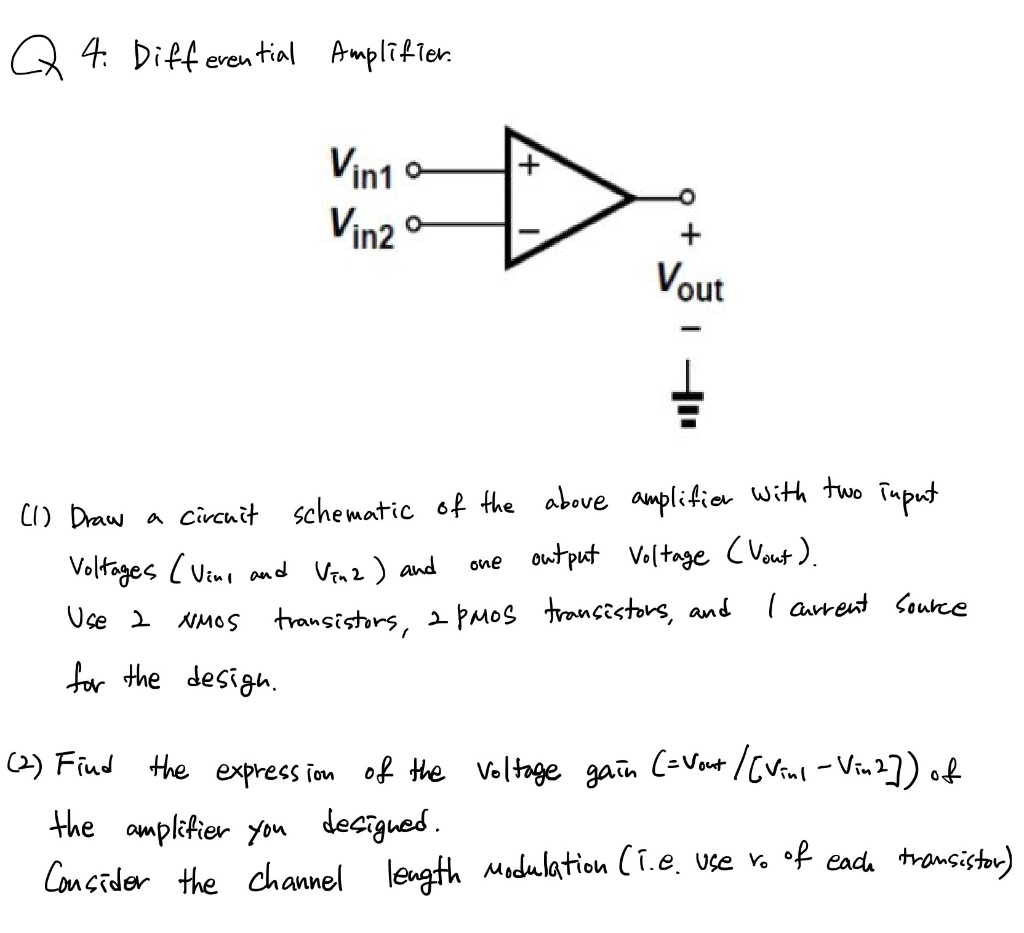 Q 4. Differential Amplifier.
Vin1
+
Vin2
−
+
Vout
−
(1) Draw a circuit schematic of the above amplifier with two input
Voltages (Vin1 and Vin2) and one output Voltage (Vout).
Use 2 NMOS transistors, 2 PMOS transistors, and 1 current source
for the design.
(2) Find the expression of the voltage gain (=Vout/[Vin1-Vin2]) of
the amplifier you designed.
Consider the channel length modulation (i.e. use ro of each transistor)